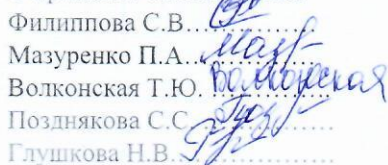 Филиппова С.В.
Мазуренко П.А. Маз
Волконская Т.Ю. Волконская
Позднякова С.С.
Глушкова Н.В.